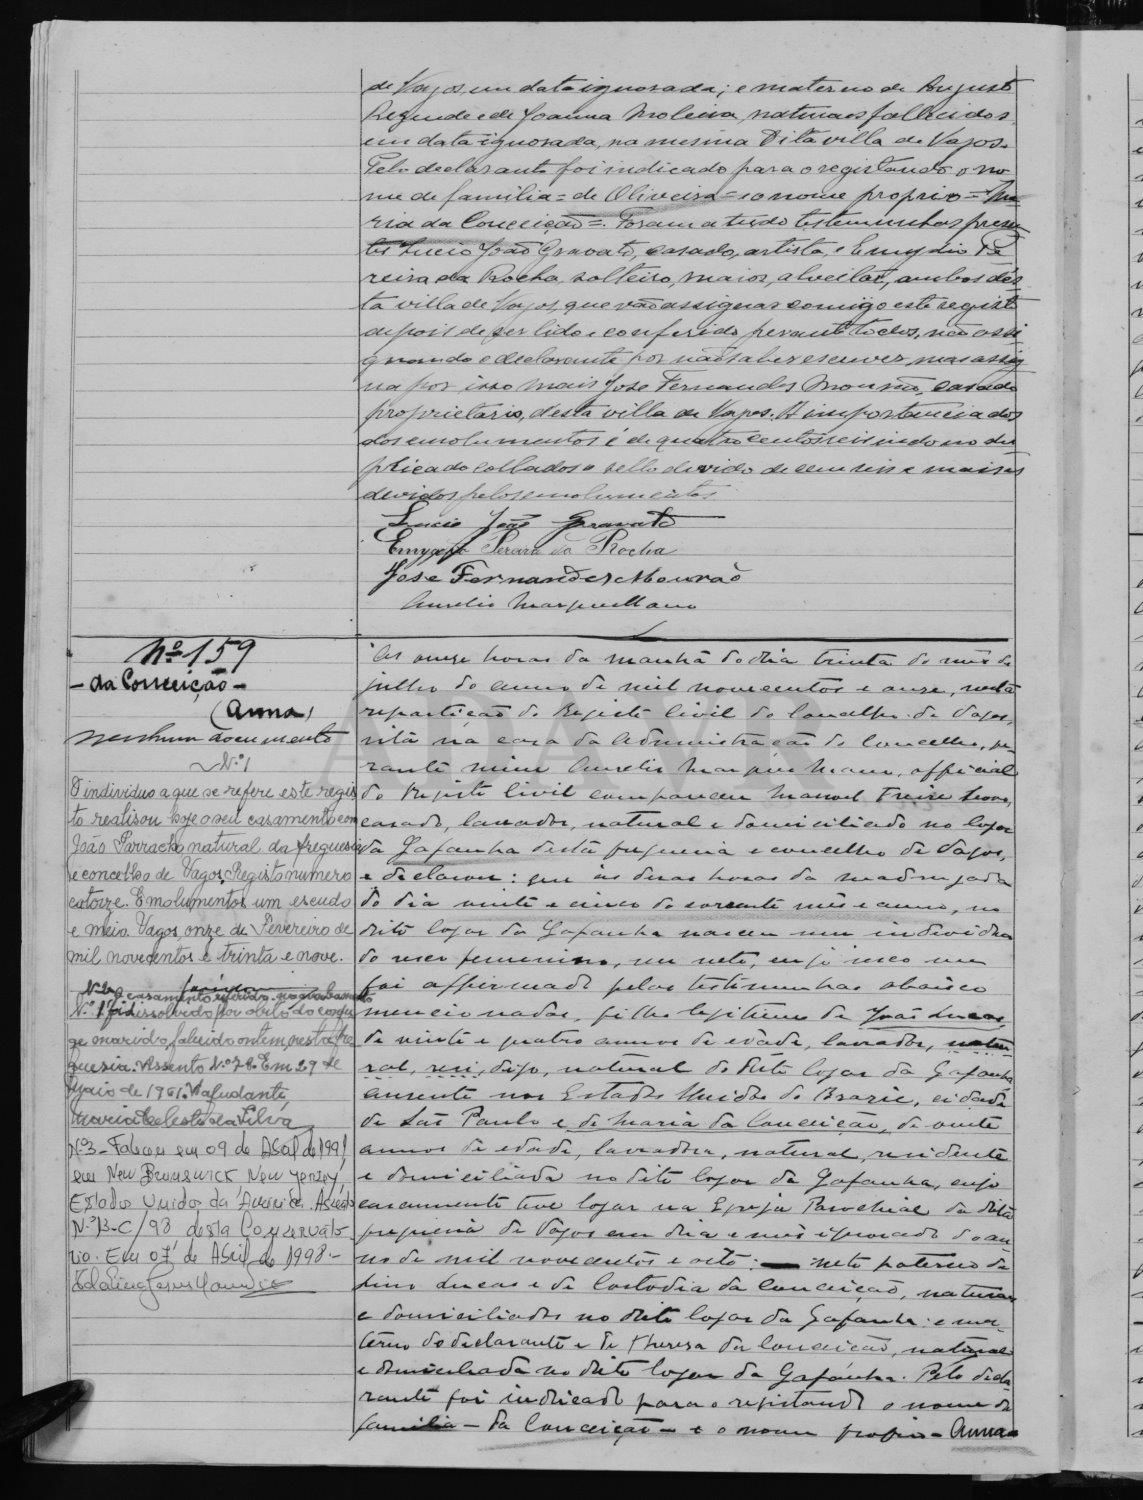 de Vagos, em data ignorada; e materno de Augusto
Rezende e de Joanna Moleira, naturaes fallecidos
em data ignorada, na mesma dita villa de Vagos.
Pelo declarante foi indicado para o registando o no-
me de familia = de Oliveira = e o nome proprio = Ma-
ria da Conceição =. Foram a tudo testemunhas presen-
tes Lucio João Gravato, casado, artista, e Emygdio Pe-
reira da Rocha, solteiro, maior, alveitar, ambos des-
ta villa de Vagos, que vão assignar comigo este registo
depois de ser lido e conferido perante todos, não assi-
gnando o declarante por não saber escrever, mas assig-
na por isso mais José Fernandes Mourão, casado
proprietario, d'esta villa de Vagos. A importancia dos
dos emolumentos é de quatro centos reis indo no du-
plicado collados o sello devido de cem reis e mais os
devidos pelos emolumentos
Lucio João Gravato
Emygdio Pereira da Rocha
Jose Fernandes Mourão
Aurelio Marques Mano
Nº 159
- da Conceição -
(Anna)
Nenhum documento
Nº 1
O individuo a que se refere este regis
to realisou hoje o seu casamento com
João Parracho natural da freguesia
e concelho de Vagos, Registo numero
catorze. Emolumentos um escudo
e meio. Vagos, onze de Fevereiro de
mil novecentos e trinta e nove.
Nº 2 O casamento referido no averbamento
N.º 1 foi dissolvido por obito do conju-
ge marido, falecido ontem, nesta fre
guesia. Assento N.º 78. Em 29 de
Maio de 1961. A ajudante,
Maria Celeste da Silva
Nº 3 - Faleceu em 09 de Abril de 1991
em New Brunswick New Jersey,
Estados Unidos da America. Assento
N.º 13-C/98 desta Conservató-
ria. Em 07 de Abril de 1998.-
Ás onze horas da manhã do dia trinta do mês de
julho do anno de mil novecentos e onze, nesta
repartição do Registo Civil do Concelho de Vagos,
sita na casa da Administração do Concelho, pe-
rante mim Aurelio Marques Mano, official
do Registo Civil compareceu Manoel Freire
casado, lavrador, natural e domiciliado no logar
da Gafanha desta freguesia e concelho de Vagos,
e declarou: que ás duas horas da madrugada
do dia vinte e cinco do corrente mês e anno, no
dito logar da Gafanha nasceu um individuo
do sexo femenino, um neto, cujo sexo me
foi affirmado pelas testimunhas abaixo
mencionadas, filho legitimo de João Lucas,
de vinte e quatro annos de edade, lavrador, natu-
ral, resi, digo, natural do dito logar da Gafanha
ausente nos Estados Unidos do Brazil, cidade
de São Paulo e de Maria da Conceição, de vinte
annos de edade, lavradora, natural, residente
e domiciliada no dito logar da Gafanha, cujo
casamento teve logar na Egreja Parochial da dita
freguesia de Vagos em dia e mês ignorado do an-
no de mil novecentos e oito: — neto paterno de
Lucas e de Custodia da Conceição, naturaes
e domiciliados no dito logar da Gafanha: e ma-
terno do declarante e de Thereza da Conceição, natural
e domiciliada no dito logar da Gafanha. Pelo decla-
rante foi indicado para o registando o nome de
familia - da Conceição - e o nome proprio - Anna -